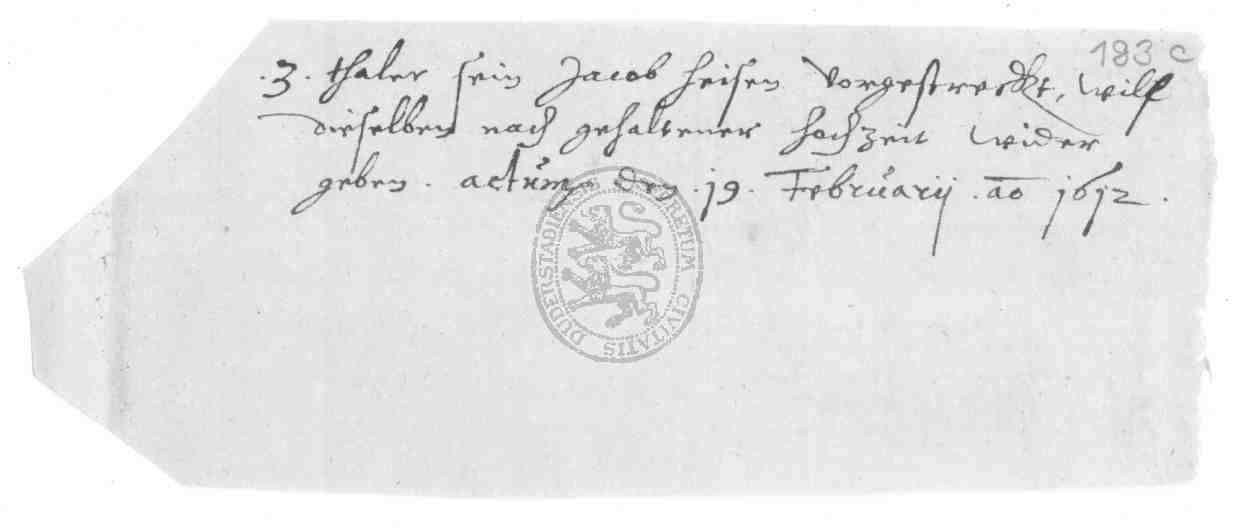 183 c
.3. thaler sein Jacob heisen vorgestreckt, will
dieselben nach gehaltener hochzeit wider
geben. actum den .19. Februarij .ao 1612.
SECRETUM CIVITATIS DUDERSTADIENSIS